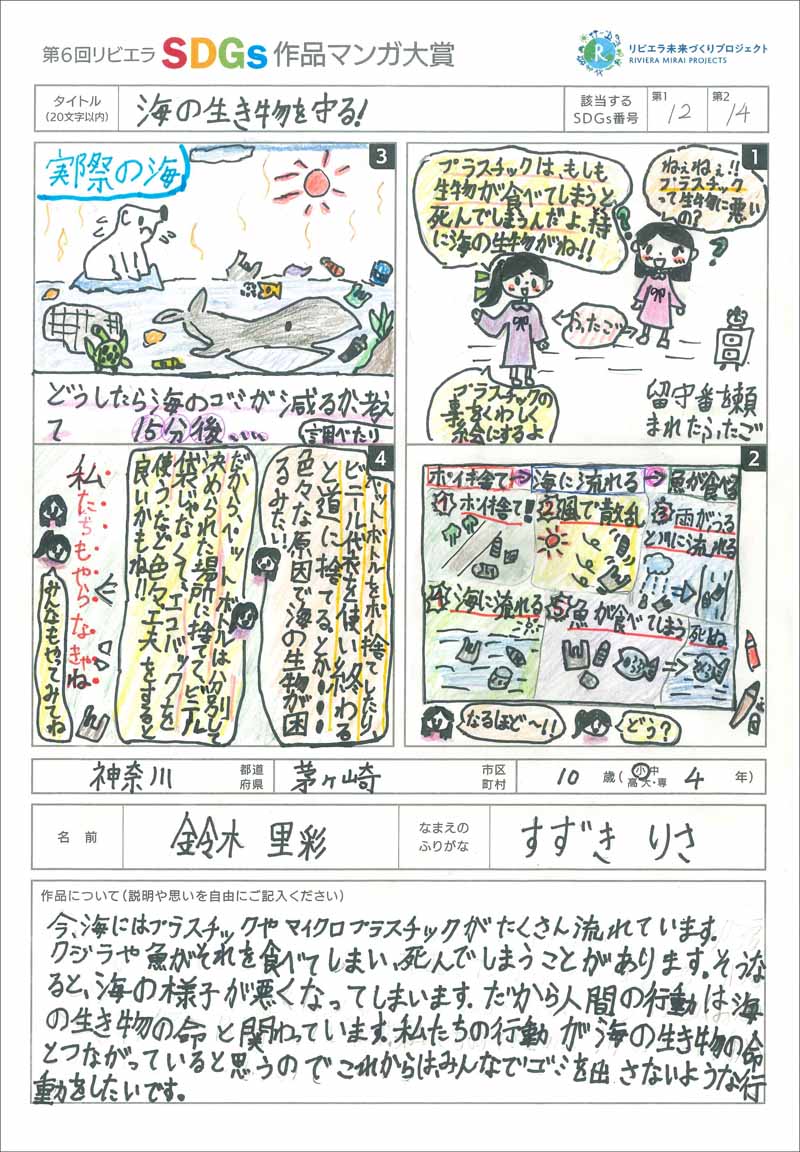 第6回リビエラ SDGs 作品マンガ大賞
リビエラ未来づくりプロジェクト
RIVIERA MIRAI PROJECTS
タイトル
(20文字以内)
海の生き物を守る!
該当する
SDGs番号
第1
12
第2
14
1
ねぇねぇ!!
プラスチック
って生物に悪い
の?
プラスチックは、もしも
生物が食べてしまうと
死んでしまうんだよ。特
に海の生物がね!!
ふたご
プラスチックの
事をくわしく
絵にするよ
留守番を頼
まれたふたご
2
ポイ捨て
海に流れる
魚が食べる
①ポイ捨て!
②風で散乱
③雨がふる
と川に流れる
④海に流れる
⑤魚が食べてしまう
死ぬ
なるほど〜!!
どう?
3
実際の海
どうしたら海のゴミが減るか考え
て
15分後....
調べたり
4
ペットボトルをポイ捨てしたり、
ビニール袋を使い終わる
と道に捨てる。とか....
色々な原因で海の生物が困
るみたい!
だからペットボトルは分別して
決められた場所に捨てて、ビニール
袋じゃなくて、エコバックを
使うなど色々工夫をすると
良いかもね!!
私たちもやらなきゃね
みんなもやってみてね
神奈川
都道
府県
茅ヶ崎
市区
町村
10 歳(小・中・高・大・専 4 年)
名 前
鈴木 里彩
なまえの
ふりがな
すずき りさ
作品について(説明や思いを自由にご記入ください)
今、海にはプラスチックやマイクロプラスチックがたくさん流れています。
クジラや魚がそれを食べてしまい、死んでしまうことがあります。そうな
ると、海の様子が悪くなってしまいます。だから人間の行動は海
の生き物の命と関わっています。私たちの行動が海の生き物の命
とつながっていると思うのでこれからはみんなでゴミを出さないような行
動をしたいです。